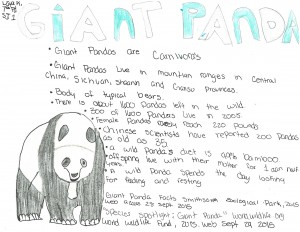 GIANT PANDA
• Giant Pandas are Carnivores
• Giant Pandas Live in mountain ranges in Central
China, Sichuan, Shaanxi and Gansu Provinces.
• Body of typical bears
• There is about 1600 Pandas left in the wild
• 300 of 1600 Pandas Live in 2005
• Female Pandas reach 220 pounds
• Chinese scientists have reported zoo pandas
as old as 35
• a wild Panda's diet is 99% bamboo
• offspring live with their mother for 1 half
• a wild Panda spends the day looting
for feeding and resting
Giant Panda Facts Smithsonian Zoological Park, 2015
web 23 Sept 2015
"Species spotlight: Giant Panda" worldwildlife.org
world wildlife Fund, 2015. web Sept 29, 2015